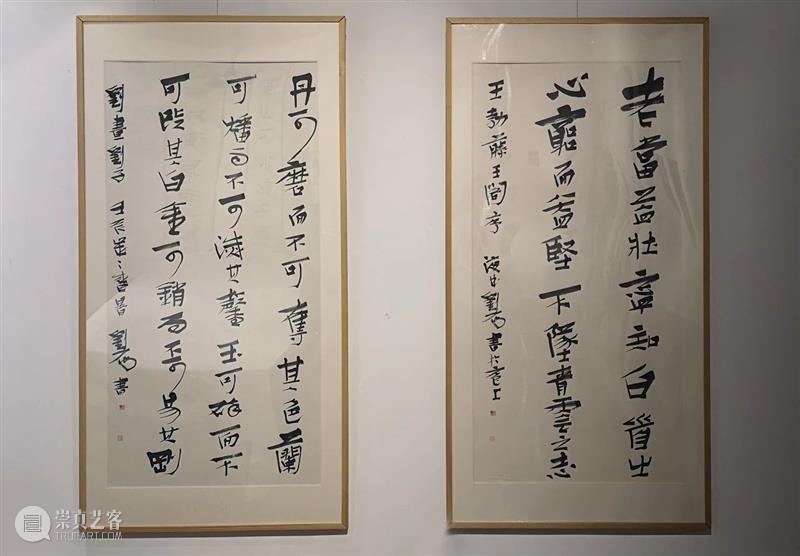 老當益壯寧知白首之
心窮而益堅不墜青雲之志
王勃藤王閣序 劉 書於
丹可磨而不可奪其色蘭
可燔而不可滅其馨玉可碎而不
可改其白金可銷而不可易其剛
劉晝劉子 劉 書
崇真艺客
TRUEART.COM